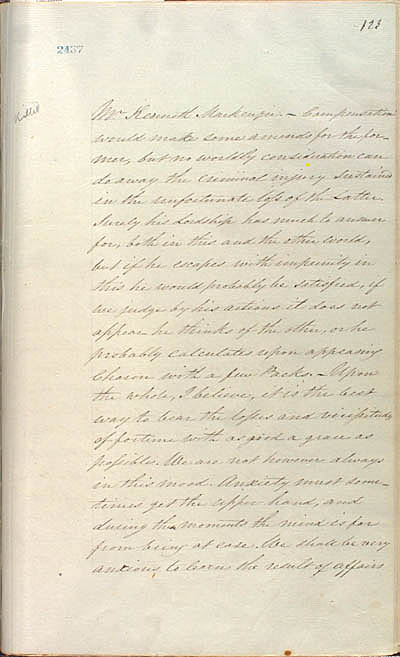 123
2457
Killed
Mr Kenneth Mackenzie. – Compensation
would make some amends for the for-
mer, but no worldly consideration can
do away the criminal injury sustained
in the unfortunate loss of the latter.
Surely his Lordship has much to answer
for, both in this and the other world,
but if he escapes with impunity in
this he would probably be satisfied, if
we judge by his actions it does not
appear he thinks of the other, or he
probably calculates upon appeasing
Charon with a few Packs. – Upon
the whole, I believe, it is the best
way to bear the losses and vicissitudes
of fortune with as good a grace as
possible. We are not however always
in this mood. Anxiety must some-
times get the upper hand, and
during the moments the mind is far
from being at ease. We shall be very
anxious to learn the result of affairs